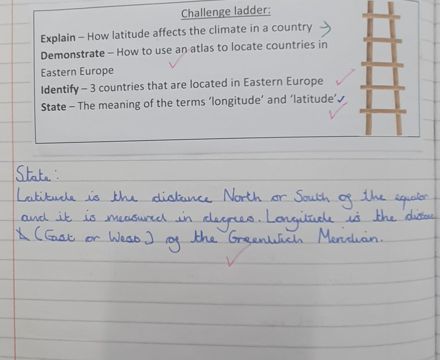 Challenge ladder:
Explain – How latitude affects the climate in a country
Demonstrate – How to use an atlas to locate countries in
Eastern Europe
Identify – 3 countries that are located in Eastern Europe
State – The meaning of the terms 'longitude' and 'latitude'
State:
Latitude is the distance North or South of the equator
and it is measured in degrees. Longitude is the distance
(East or West) of the Greenwich Meridian.